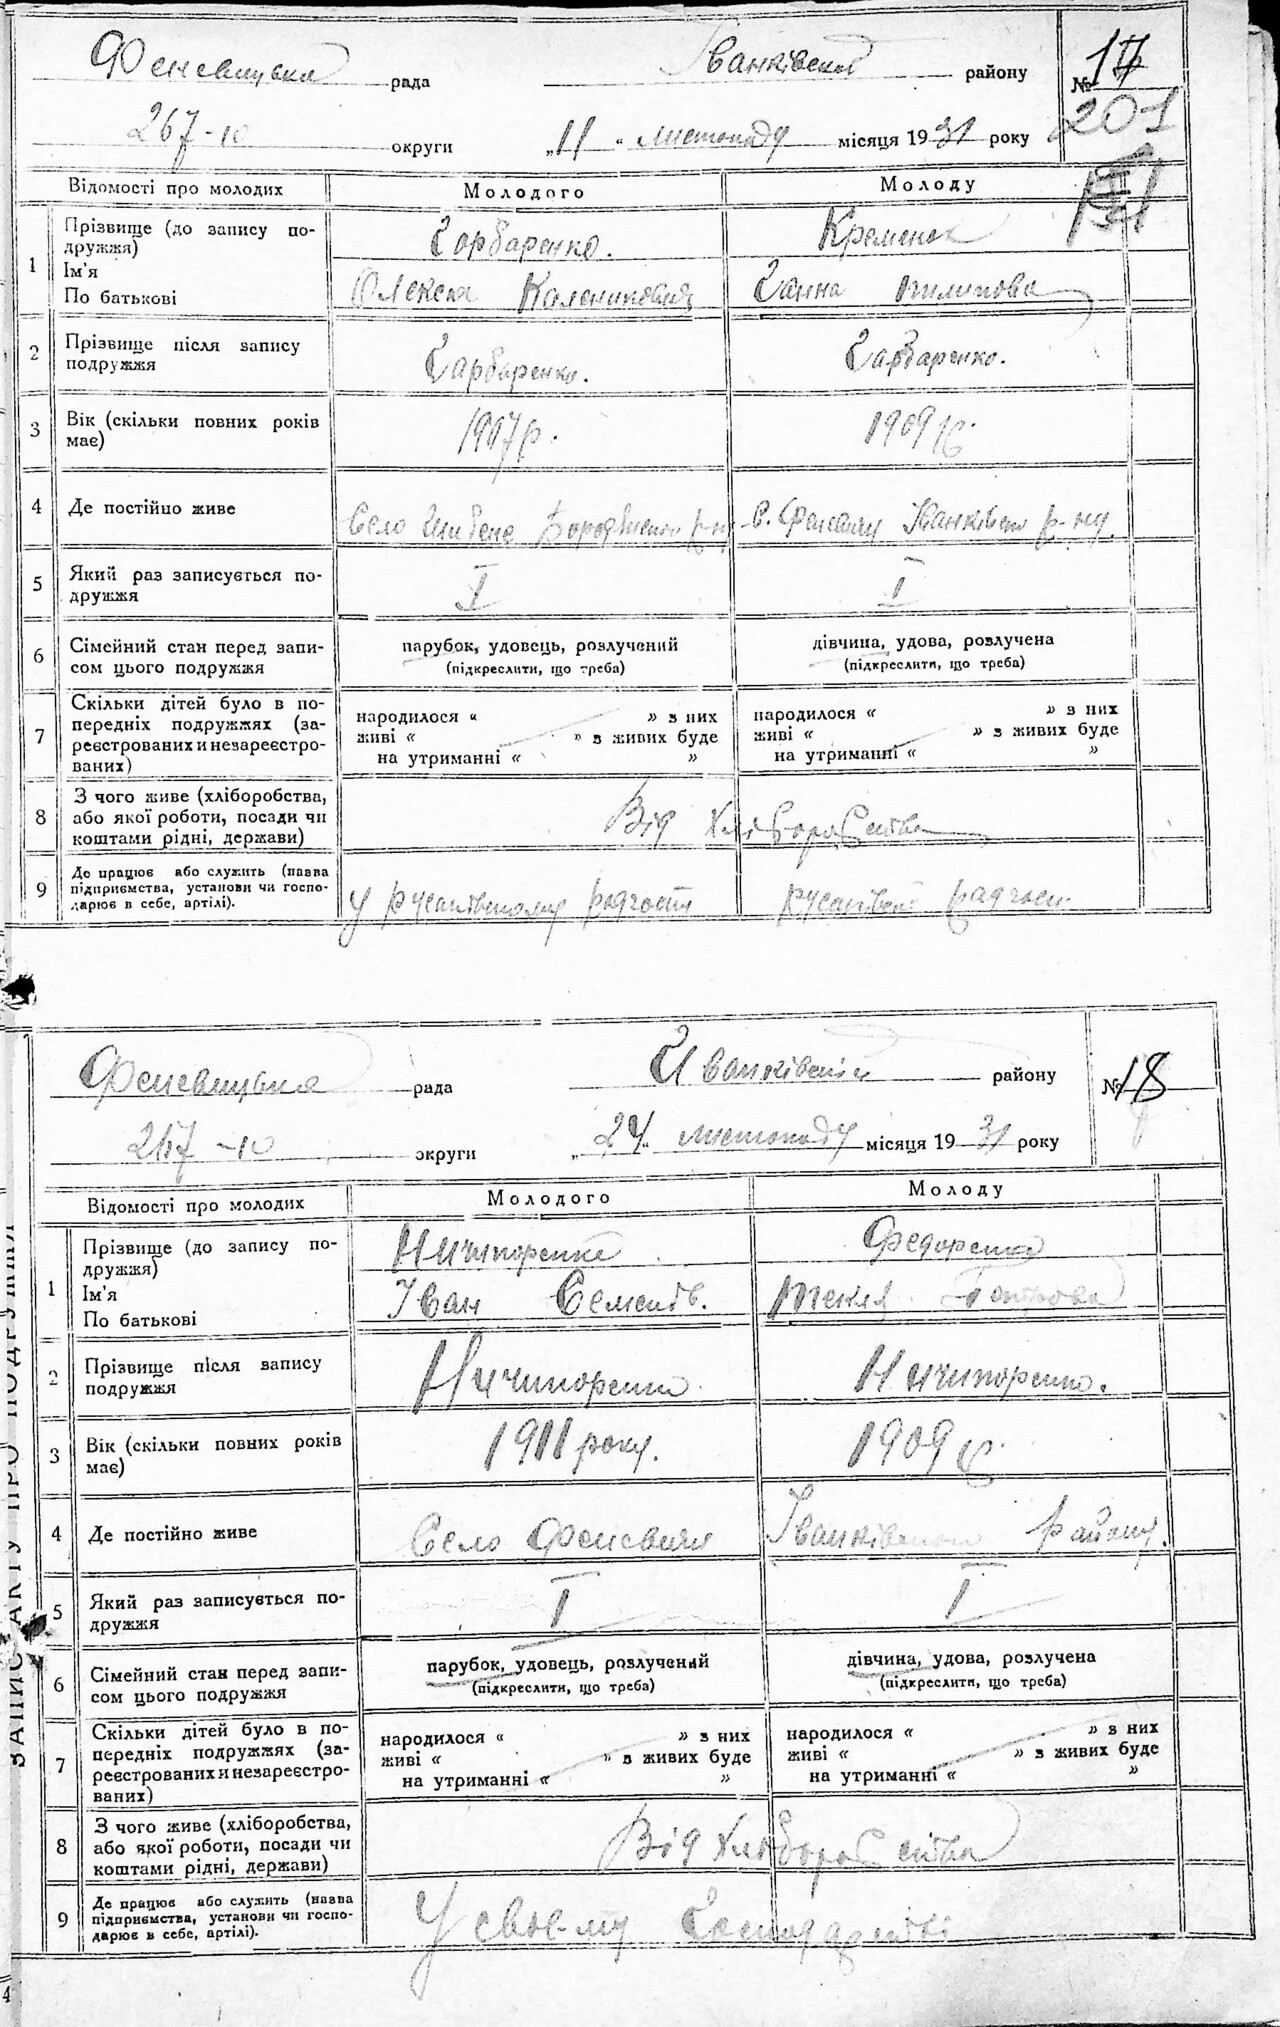 Феневицька рада Іванківськ району № 17
201
267-10 округи „11“ листопаду місяця 1931 року
Відомості про молодих Молодого Молоду
1 Прізвище (до запису по-
дружжя) Горбаренко. Кременок
Ім'я
По батькові Олекса Калеников Ганна Пилипова
2 Прізвище після запису
подружжя Гарбаренко. Гарбаренко.
3 Вік (скільки повних років
має) 1907 р. 1909 р.
4 Де постійно живе Село Шибене Бородянсько р-ну с. Феневичи Іванківсько р-ну.
5 Який раз записується по-
дружжя I I
6 Сімейний стан перед запи-
сом цього подружжя
парубок, удовець, розлучений дівчина, удова, розлучена
(підкреслити, що треба) (підкреслити, що треба)
7 Скільки дітей було в по-
передніх подружжях (за-
реєстрованих и незареєстро-
ваних)
народилося “ » з них народилося “ » з них
живі “ » з живих буде живі “ » з живих буде
на утриманні “ » на утриманні “ »
8 З чого живе (хліборобства,
або якої роботи, посади чи
коштами рідні, держави) Від Хліборобства
9 Де працює або служить (назва
підприємства, установи чи госпо-
дарює в себе, артілі). У Русанівському радгоспі Русанівсь радгосп.
Феневицька рада Иванківській району № 18
267-10 округи „24“ листопаду місяця 1931 року
Відомості про молодих Молодого Молоду
1 Прізвище (до запису по-
дружжя) Ничипоренко Федоренко
Ім'я
По батькові Іван Семенів. Текля Петрова
2 Прізвище після запису
подружжя Ничипоренко. Ничипоренко.
3 Вік (скільки повних років
має) 1911 року. 1909 р.
4 Де постійно живе Село Феневичи Іванківського району.
5 Який раз записується по-
дружжя I I
6 Сімейний стан перед запи-
сом цього подружжя
парубок, удовець, розлучений дівчина, удова, розлучена
(підкреслити, що треба) (підкреслити, що треба)
7 Скільки дітей було в по-
передніх подружжях (за-
реєстрованих и незареєстро-
ваних)
народилося “ » з них народилося “ » з них
живі “ » з живих буде живі “ » з живих буде
на утриманні “ » на утриманні “ »
8 З чого живе (хліборобства,
або якої роботи, посади чи
коштами рідні, держави) Від Хліборобства
9 Де працює або служить (назва
підприємства, установи чи госпо-
дарює в себе, артілі). У своє-му Господарстві
ЗАПИС АКТУ ПРО ПОДРУЖЖЯ
4